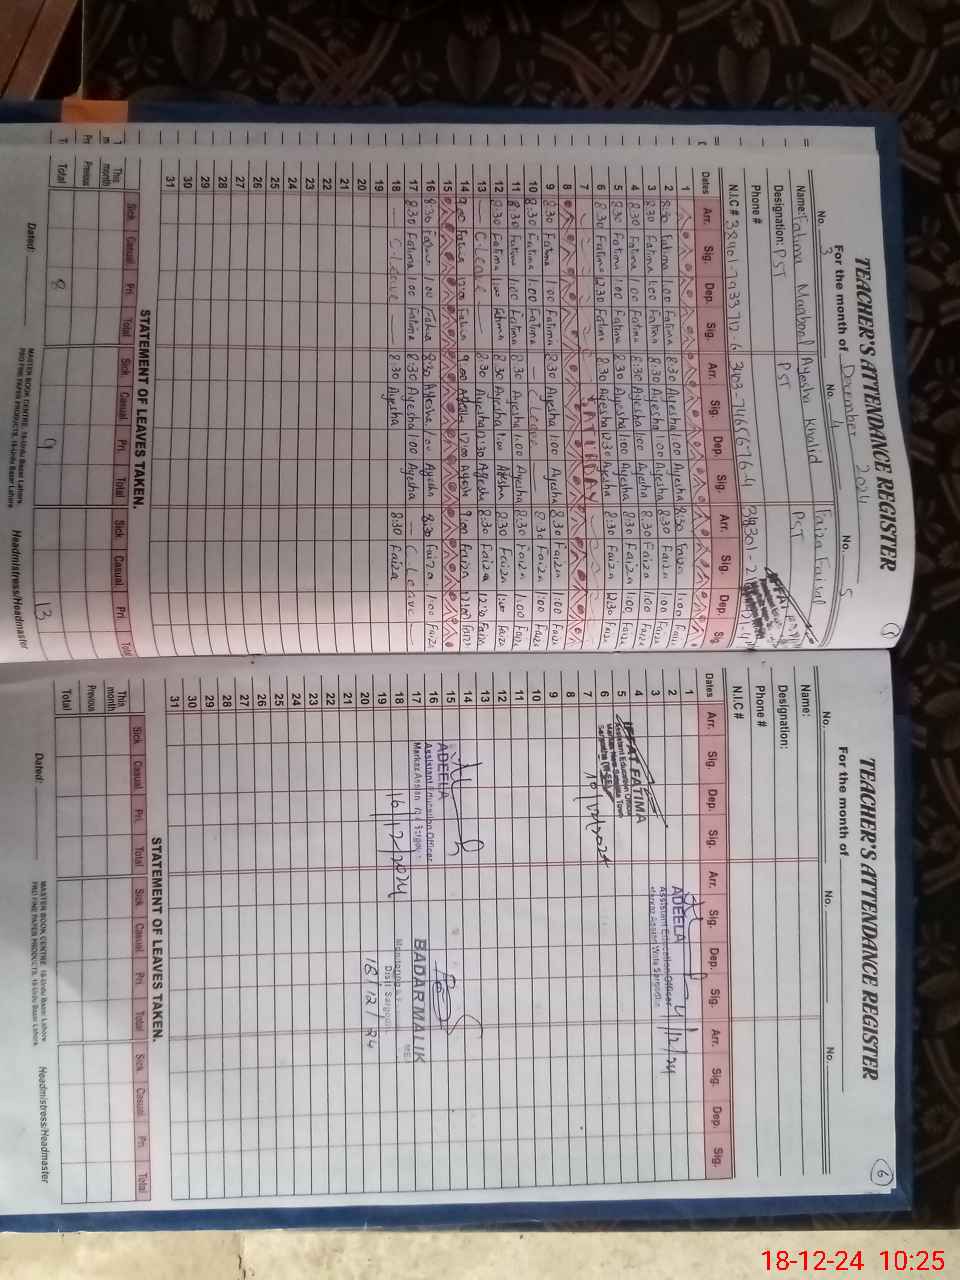 TEACHER'S ATTENDANCE REGISTER
For the month of December 2024
No. 3 No. 4 No. 5
Name: Fatima Maqbool Ayesha Khalid Faiza Faisal
Designation: PST PST PST
Phone #
N.I.C #
Dates Arr. Sig. Dep. Sig. Arr. Sig. Dep. Sig. Arr. Sig. Dep. Sig
1
2 8:30 Fatima 1:00 Fatima 8:30 Ayesha 1:00 Ayesha 8:30 Faiza 1:00
3 8:30 Fatima 1:00 Fatima 8:30 Ayesha 1:00 Ayesha 8:30 Faiza 1:00
4 8:30 Fatima 1:00 Fatima 8:30 Ayesha 1:00 Ayesha 8:30 Faiza 1:00
5 8:30 Fatima 1:00 Fatima 8:30 Ayesha 1:00 Ayesha 8:30 Faiza 1:00
6 8:30 Fatima 12:30 Fatima 8:30 Ayesha 12:30 Ayesha 8:30 Faiza 12:30
7 SATURDAY
8
9 8:30 Fatima 1:00 Fatima 8:30 Ayesha 1:00 Ayesha 8:30 Faiza 1:00
10 8:30 Fatima 1:00 Fatima — C Leave — 8:30 Faiza 1:00
11 8:30 Fatima 1:00 Fatima 8:30 Ayesha 1:00 Ayesha 8:30 Faiza 1:00
12 8:30 Fatima 1:00 Fatima 8:30 Ayesha 1:00 Ayesha 8:30 Faiza 1:00
13 — C Leave — 8:30 Ayesha 12:30 Ayesha 8:30 Faiza 12:30
14 9:00 Fatima 12:00 Fatima 9:00 Ayesha 12:00 Ayesha 9:00 Faiza 12:00
15
16 8:30 Fatima 1:00 Fatima 8:30 Ayesha 1:00 Ayesha 8:30 Faiza 1:00
17 8:30 Fatima 1:00 Fatima 8:30 Ayesha 1:00 Ayesha — C Leave —
18 — C Leave — 8:30 Ayesha 8:30 Faiza
19
20
21
22
23
24
25
26
27
28
29
30
31
STATEMENT OF LEAVES TAKEN.
Sick Casual Pri Total Sick Casual Pri Total Sick Casual Pri Total
This month
Previous
Total 8 9 13
Dated:
MASTER BOOK CENTRE. 16-Urdu Bazar Lahore.
PRO FINE PAPER PRODUCTS. 16-Urdu Bazar Lahore.
Headmistress/Headmaster
6
TEACHER'S ATTENDANCE REGISTER
For the month of
No. No. No.
Name:
Designation:
Phone #
N.I.C #
Dates Arr. Sig. Dep. Sig. Arr. Sig. Dep. Sig. Arr. Sig. Dep. Sig.
1
2
3
4
5
6
7
8
9
10
11
12
13
14
15
16
17
18
19
20
21
22
23
24
25
26
27
28
29
30
31
ADEELA
Assistant Education Officer
4/12/24
IFFAT FATIMA
Assistant Education Officer
10/12/2024
ADEELA
Assistant Education Officer
16/12/2024
BADAR MALIK
18/12/24
STATEMENT OF LEAVES TAKEN.
Sick Casual Pri Total Sick Casual Pri Total Sick Casual Pri Total
This month
Previous
Total
Dated:
MASTER BOOK CENTRE. 16-Urdu Bazar Lahore.
PRO FINE PAPER PRODUCTS. 16-Urdu Bazar Lahore.
Headmistress/Headmaster
18-12-24 10:25